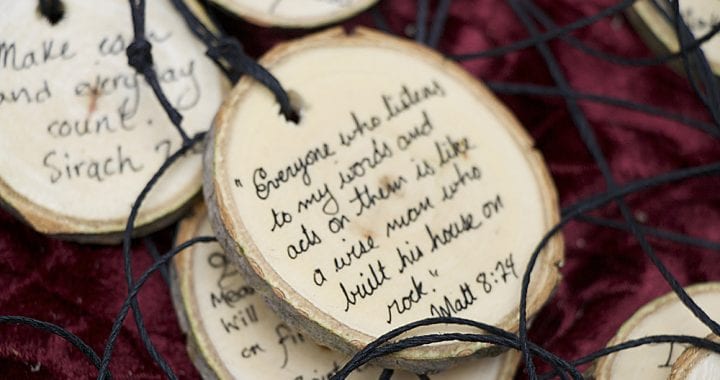 Make each
and everyday
count.
Sirach
"Everyone who listens
to my words and
acts on them is like
a wise man who
built his house on
rock."
Matt 8:24
Will
on